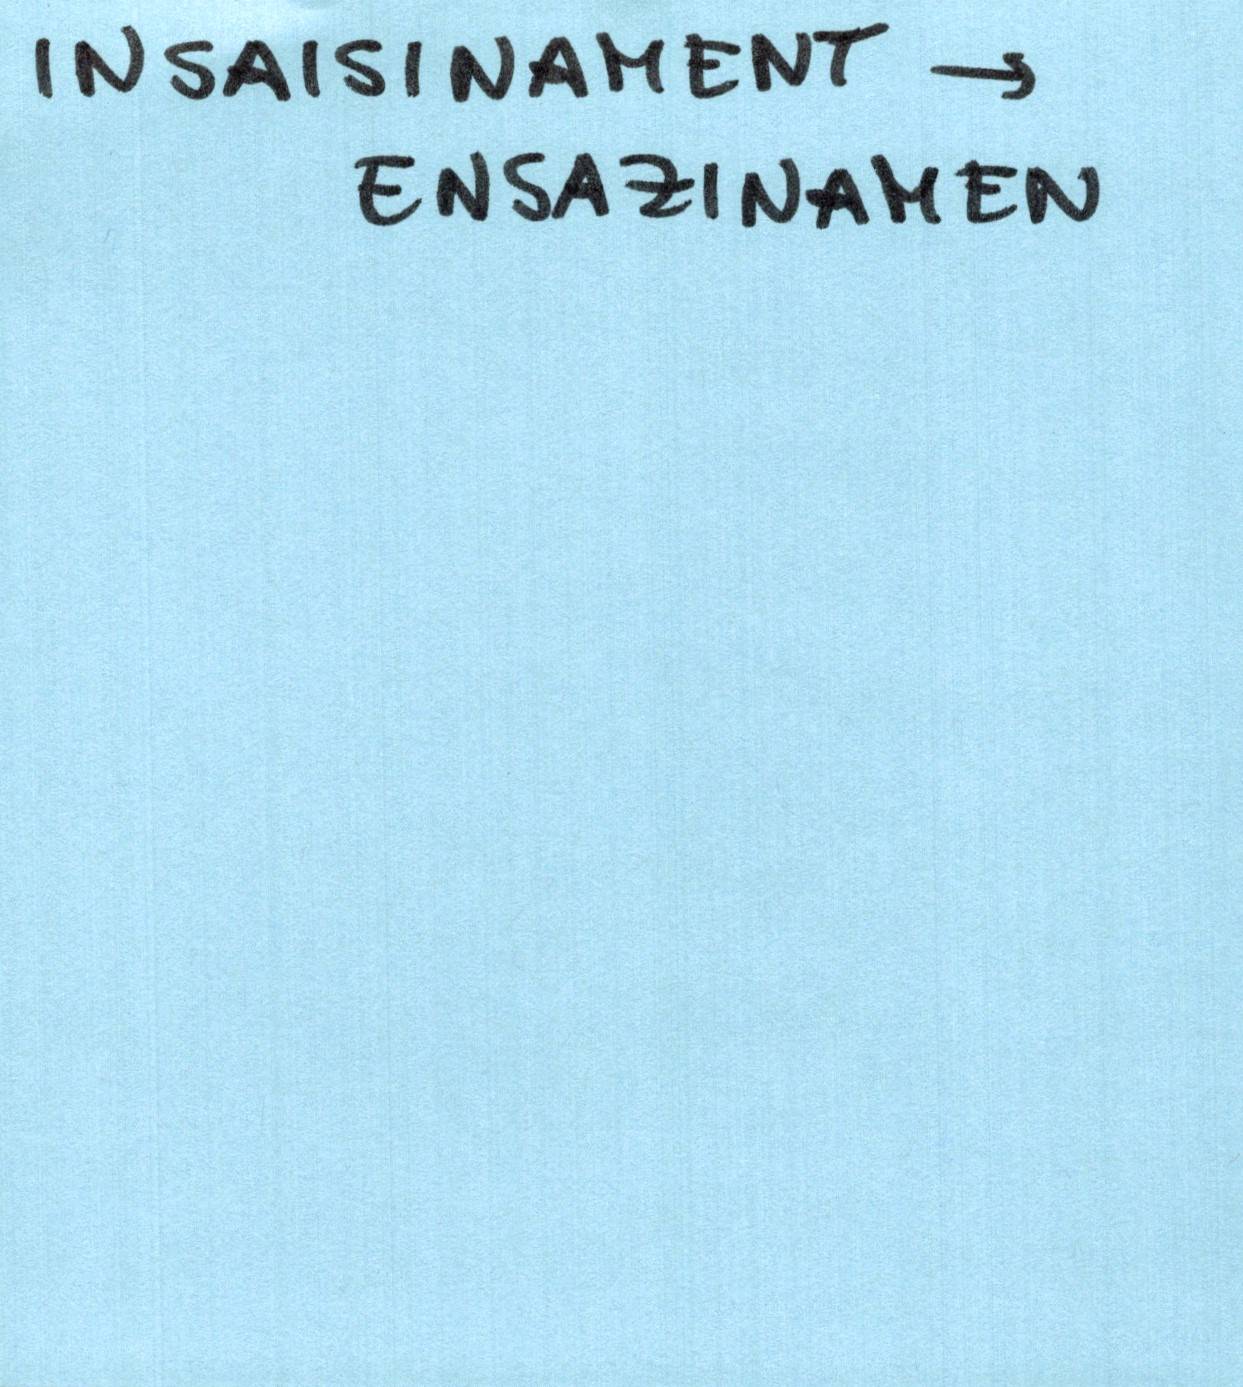 INSAISINAMENT →
ENSAZINAMEN